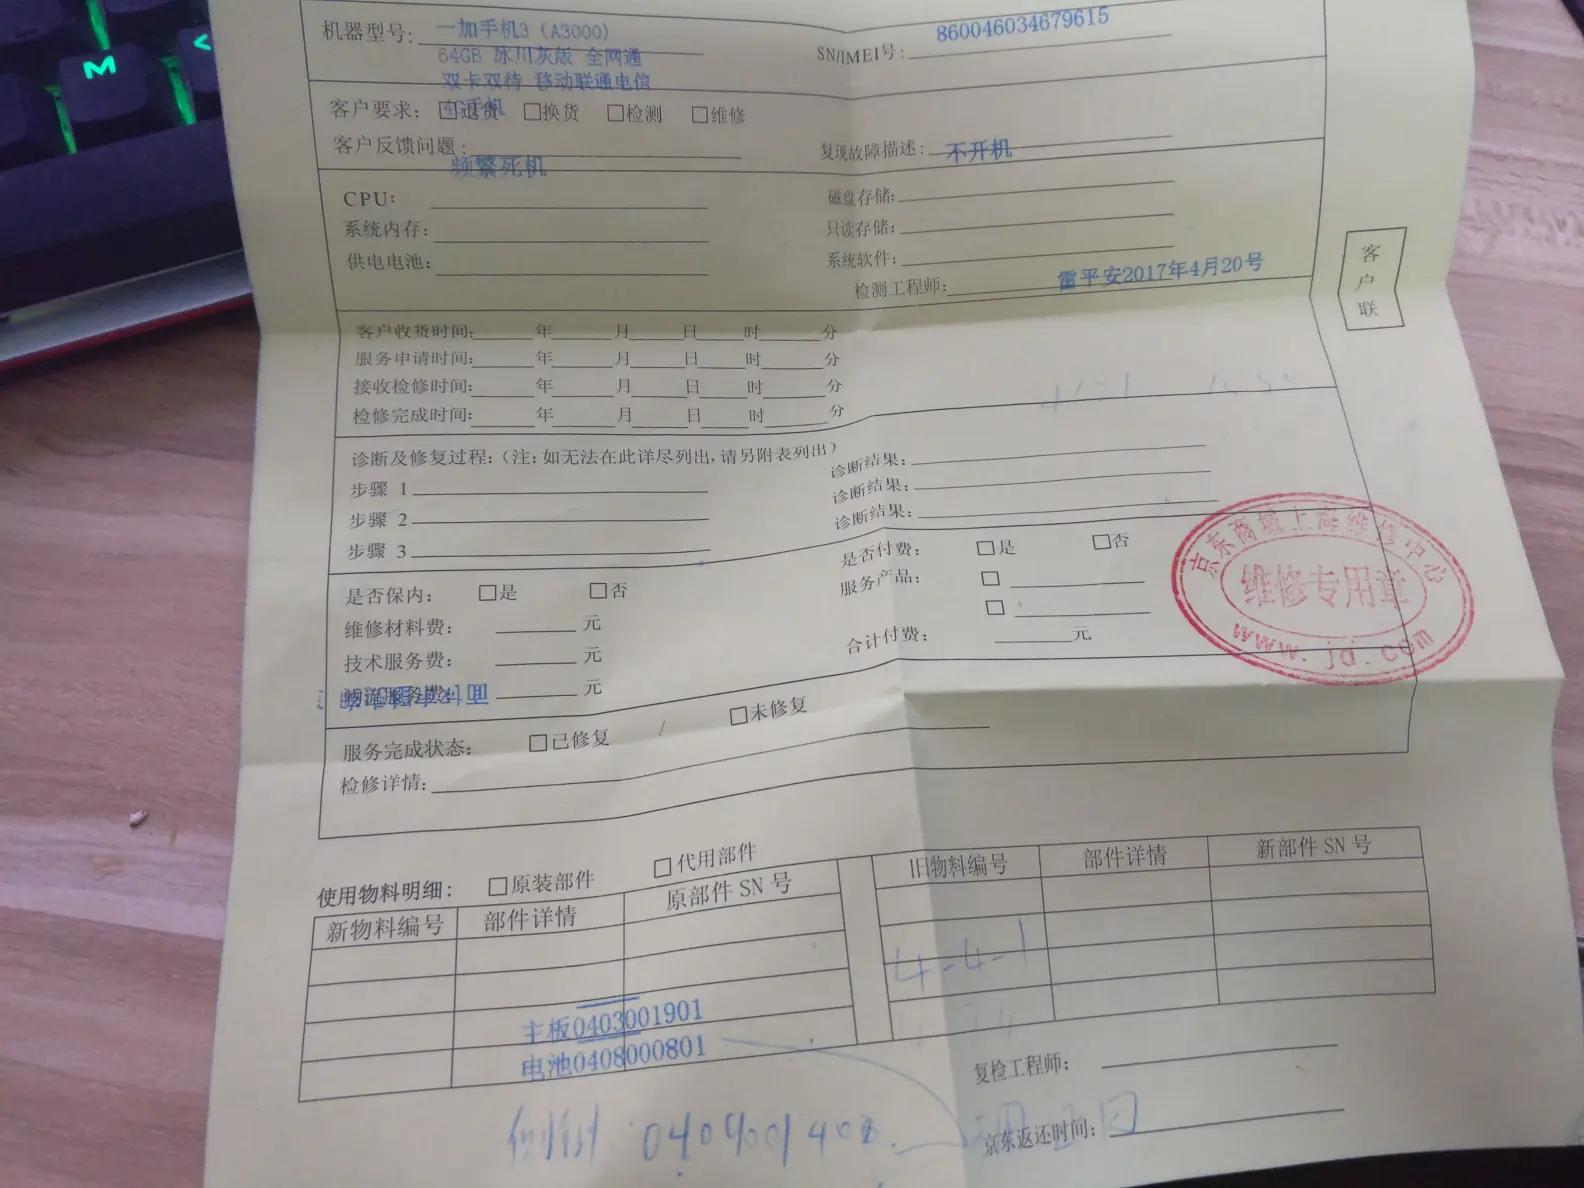 机器型号: 一加手机3 (A3000)
64GB 冰川灰版 全网通
双卡双待 移动联通电信
SN/IMEI号: 860046034679615
客户要求: □退货 □换货 □检测 □维修
手机
客户反馈问题: 频繁死机
复现故障描述: 不开机
CPU:
磁盘存储:
系统内存:
只读存储:
供电电池:
系统软件:
检测工程师: 雷平安2017年4月20号
客户联
客户收货时间: 年 月 日 时 分
服务申请时间: 年 月 日 时 分
接收检修时间: 年 月 日 时 分
检修完成时间: 年 月 日 时 分
诊断及修复过程:(注:如无法在此详尽列出,请另附表列出)
步骤 1
诊断结果:
步骤 2
诊断结果:
步骤 3
诊断结果:
是否保内: □是 □否
是否付费: □是 □否
维修材料费: 元
服务产品: □
□
技术服务费: 元
合计付费: 元
物流服务费: 元
京东商城上海维修中心
维修专用章
www.jd.com
服务完成状态: □已修复 / □未修复
检修详情:
使用物料明细: □原装部件 □代用部件
新物料编号 部件详情 原部件 SN 号
旧物料编号 部件详情 新部件 SN 号
4-4-1
主板0403001901
电池0408000801
复检工程师:
京东返还时间: